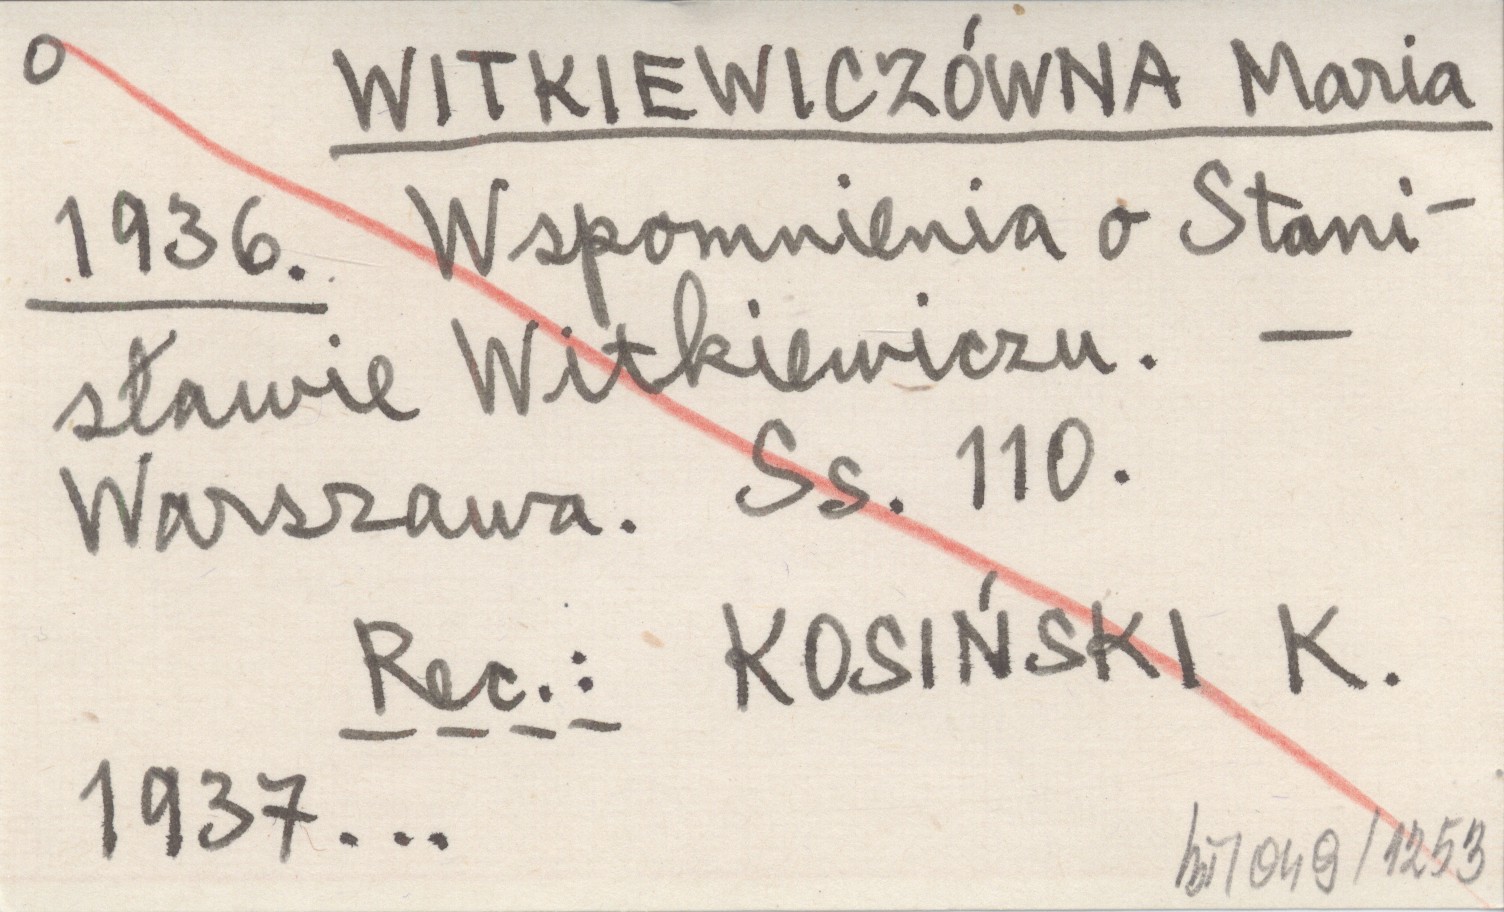 o WITKIEWICZÓWNA Maria
1936. Wspomnienia o Stani-
sławie Witkiewiczu. —
Warszawa. Ss. 110.
Rec.: KOSIŃSKI K.
1937...
/049/1253